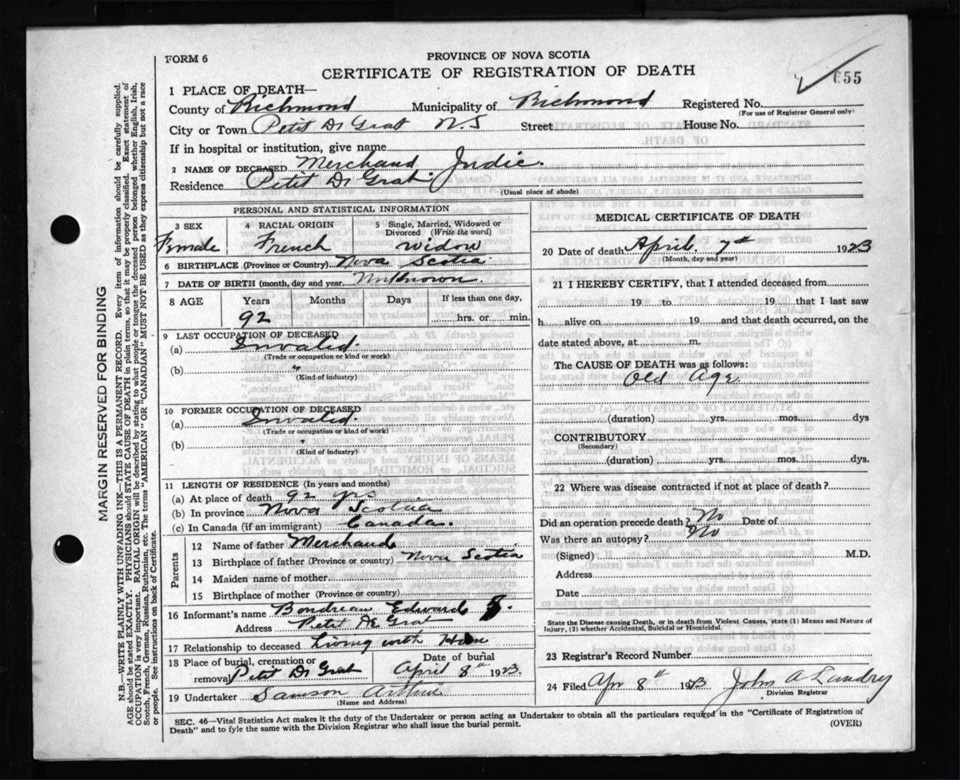 FORM 6
PROVINCE OF NOVA SCOTIA
CERTIFICATE OF REGISTRATION OF DEATH
655
1 PLACE OF DEATH—
County of Richmond Municipality of Richmond Registered No.
(For use of Registrar General only)
City or Town Petit De Grat N.S Street House No.
If in hospital or institution, give name
2 NAME OF DECEASED Merchand Judie.
Residence Petit De Grat.
(Usual place of abode)
PERSONAL AND STATISTICAL INFORMATION
3 SEX Female
4 RACIAL ORIGIN French
5 Single, Married, Widowed or Divorced (Write the word) Widow
6 BIRTHPLACE (Province or Country) Nova Scotia
7 DATE OF BIRTH (month, day and year) Unknown.
8 AGE Years Months Days If less than one day,
92 hrs. or min.
9 LAST OCCUPATION OF DECEASED
(a) Invalid
(Trade or occupation or kind of work)
(b) "
(Kind of industry)
10 FORMER OCCUPATION OF DECEASED
(a) Invalid
(Trade or occupation or kind of work)
(b) "
(Kind of industry)
11 LENGTH OF RESIDENCE (In years and months)
(a) At place of death 92 yrs
(b) In province Nova Scotia
(c) In Canada (if an immigrant) Canada.
Parents
12 Name of father Merchand
13 Birthplace of father (Province or country) Nova Scotia
14 Maiden name of mother
15 Birthplace of mother (Province or country)
16 Informant's name Bondreau Edward
Address Petit De Grat
17 Relationship to deceased Living with
18 Place of burial, cremation or removal Petit De Grat
Date of burial April 8th 1923
19 Undertaker Samson Arthur
(Name and Address)
MEDICAL CERTIFICATE OF DEATH
20 Date of death April 7th 1923
(Month, day and year)
21 I HEREBY CERTIFY, that I attended deceased from
19 to 19 that I last saw
h alive on 19 and that death occurred, on the
date stated above, at m.
The CAUSE OF DEATH was as follows:
Old Age
(duration) yrs. mos. dys
CONTRIBUTORY
(Secondary)
(duration) yrs. mos. dys
22 Where was disease contracted if not at place of death?
Did an operation precede death? No Date of
Was there an autopsy? No
(Signed) M.D.
Address
Date
State the Disease causing Death, or in death from Violent Causes, state (1) Means and Nature of
Injury, (2) whether Accidental, Suicidal or Homicidal.
23 Registrar's Record Number
24 Filed Apr 8th 1923 John A Landry
Division Registrar
SEC. 46—Vital Statistics Act makes it the duty of the Undertaker or person acting as Undertaker to obtain all the particulars required in the "Certificate of Registration of
Death" and to fyle the same with the Division Registrar who shall issue the burial permit.
(OVER)
MARGIN RESERVED FOR BINDING
N.B.—WRITE PLAINLY WITH UNFADING INK—THIS IS A PERMANENT RECORD. Every item of information should be carefully supplied.
AGE should be stated EXACTLY. PHYSICIANS should STATE CAUSE OF DEATH in plain terms, so that it may be properly classified. Exact statement of
OCCUPATION is very important. RACIAL ORIGIN will be described by stating to what people or tongue the deceased person belonged whether English, Irish,
Scotch, French, German, Russian, Ruthenian, etc. The terms "AMERICAN" OR "CANADIAN" MUST NOT BE USED as they express citizenship but not a race
or people. See instructions on back of Certificate.